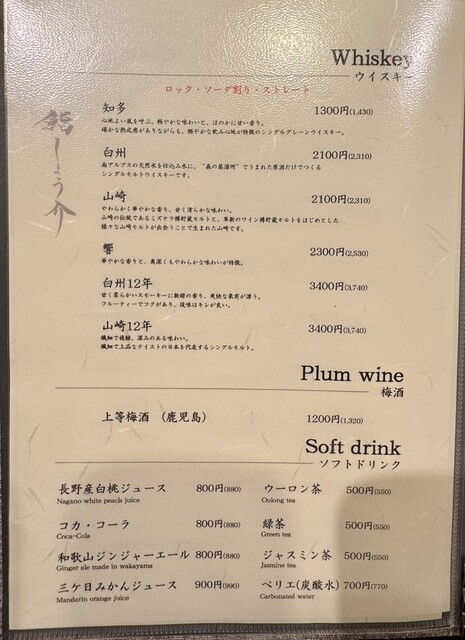 Whiskey
ウイスキー
ロック・ソーダ割り・ストレート
鮨しょう介
知多 1300円(1,430)
心地よい風を呼ぶ、軽やかな味わいと、ほのかに甘い香り。
確かな熟成感がありながらも、軽やかな飲み心地が特徴のシングルグレーンウイスキー。
白州 2100円(2,310)
南アルプスの天然水を仕込み水に、“森の蒸溜所”でうまれた原酒だけでつくる
シングルモルトウイスキーです。
山崎 2100円(2,310)
やわらかく華やかな香り、甘く滑らかな味わい。
山崎の伝統であるミズナラ樽貯蔵モルトと、革新のワイン樽貯蔵モルトをはじめとした
様々な山崎モルトが出会うことで生まれた山崎です。
響 2300円(2,530)
華やかな香りと、奥深くもやわらかな味わいが特徴。
白州12年 3400円(3,740)
甘く柔らかいスモーキーに新緑の香り、爽快な果実が漂う。
フルーティーでコクがあり、後味はキレが良い。
山崎12年 3400円(3,740)
繊細で複雑、深みのある味わい。
繊細で上品なテイストの日本を代表するシングルモルト。
Plum wine
梅酒
上等梅酒 (鹿児島) 1200円(1,320)
Soft drink
ソフトドリンク
長野産白桃ジュース 800円(880)
Nagano white peach juice
コカ・コーラ 800円(880)
Coca-Cola
和歌山ジンジャーエール 800円(880)
Ginger ale made in wakayama
三ケ日みかんジュース 900円(990)
Mandarin orange juice
ウーロン茶 500円(550)
Oolong tea
緑茶 500円(550)
Green tea
ジャスミン茶 500円(550)
Jasmine tea
ペリエ(炭酸水) 700円(770)
Carbonated water